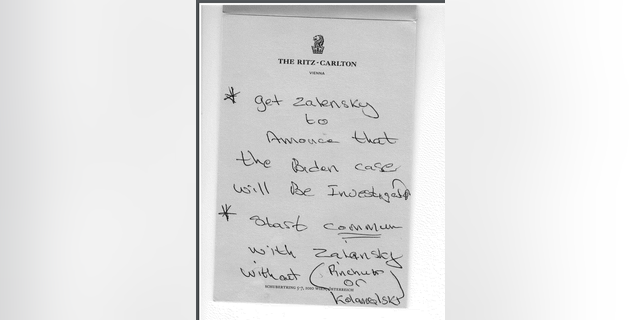 THE RITZ-CARLTON
VIENNA
* get Zalensky
to
Annouce that
the Biden case
will Be Investigated
* start commun
with Zalansky
without (Pinchuk
or
Kolamalsky)
SCHUBERTRING 5-7, 1010 WIEN, ÖSTERREICH